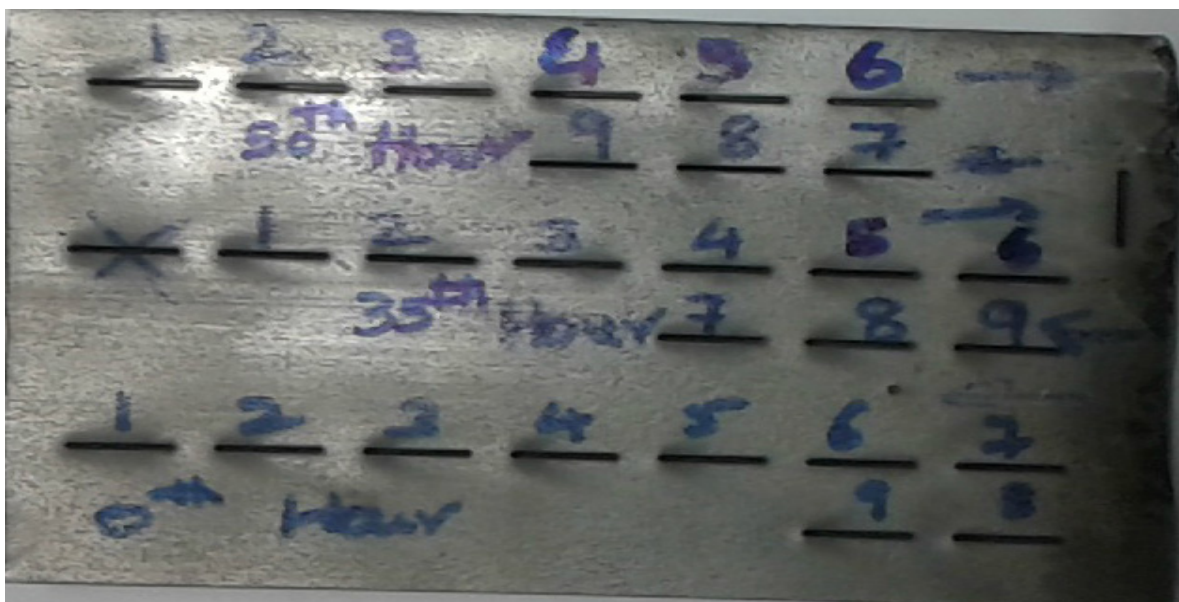 1 2 3 4 5 6
30th Hour 9 8 7
X 1 2 3 4 5 6
35th Hour 7 8 9
1 2 3 4 5 6 7
0th Hour 9 8